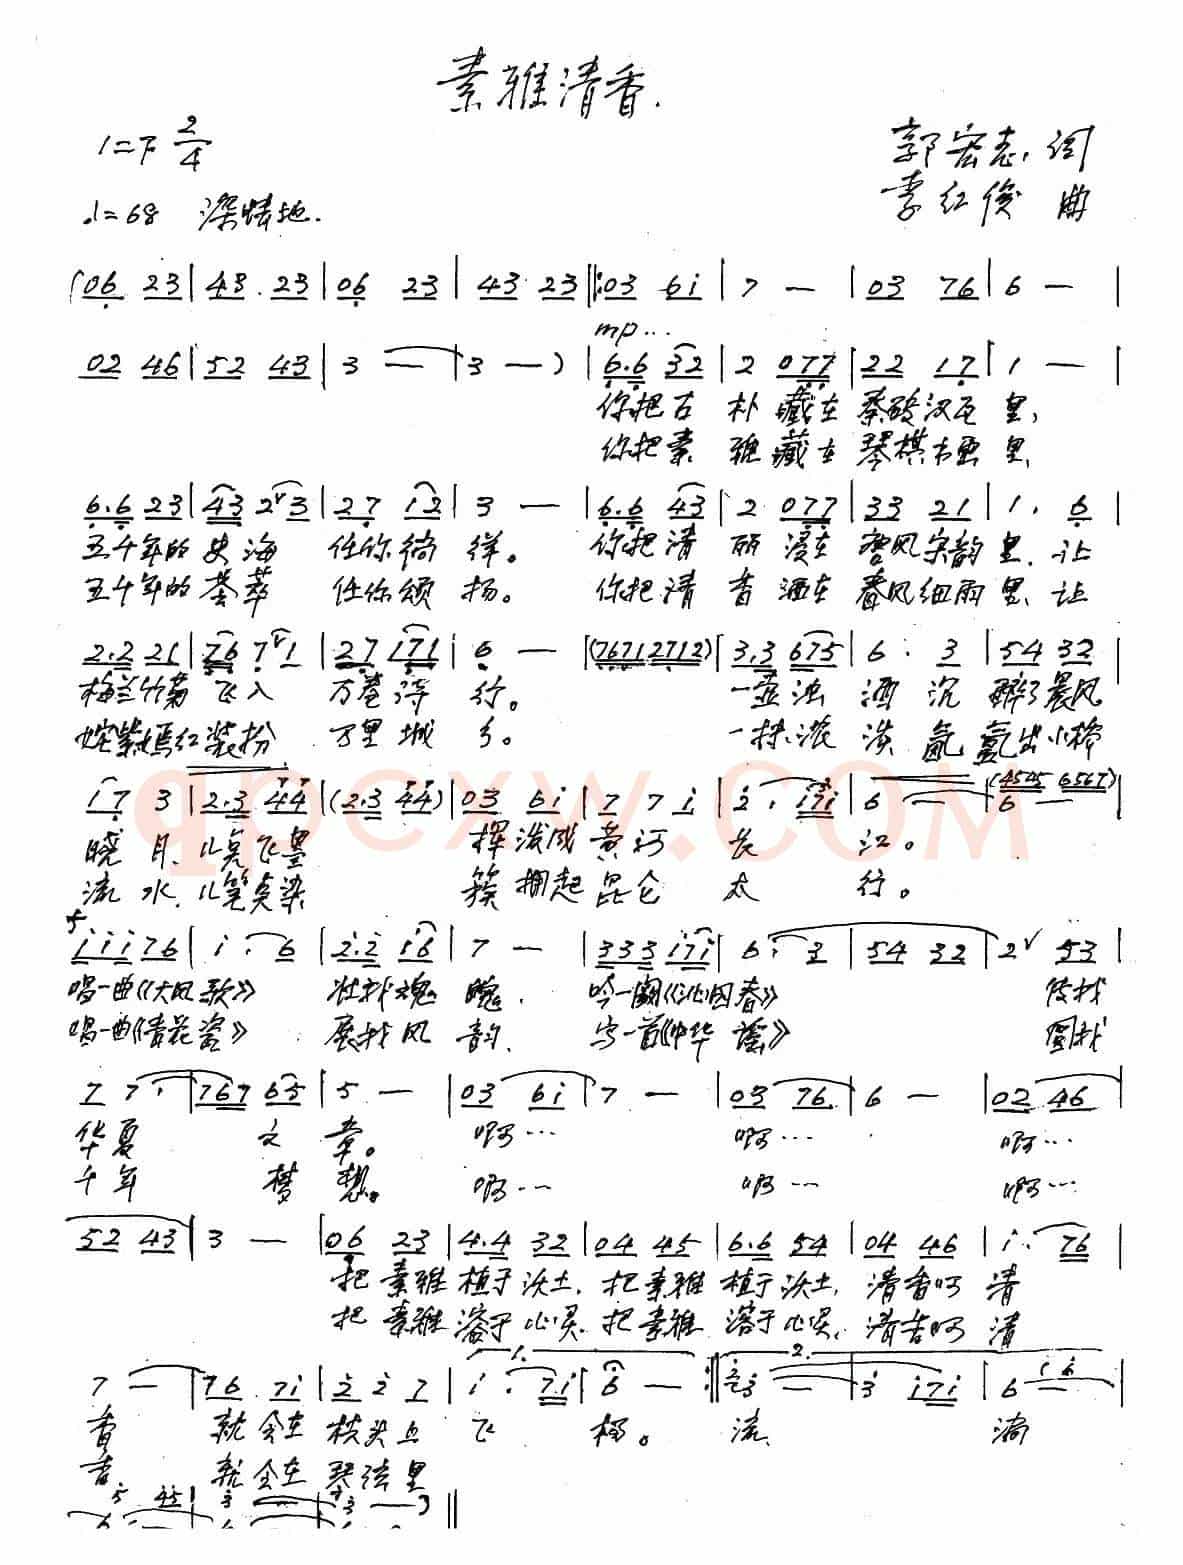 素雅清香.
1=F 2/4
郭宏志.词
♩=68 深情地.
李红俊 曲
(06 23|43 23|06 23|43 23||:03 6i|7 —|03 76|6 —|
mp...
02 46|52 43|3 —|3 —)|6.6 32|2 077|22 17|1 —|
你把古 朴藏在 秦砖汉瓦 里,
你把素 雅藏在 琴棋书画 里,
6.6 23|43 2 3|27 12|3 —|6.6 43|2 077|33 21|1. 6|
五千年的 史海 任你徜 徉。 你把清 丽浸在 唐风宋韵 里. 让
五千年的 荟萃 任你颂 扬。 你把清 香洒在 春风细雨 里、让
2.2 21|76 7 1|27 171|6 —|(76712712)|3.3 675|6. 3|54 32|
梅兰竹菊 飞入 万卷诗 行。 一壶浊 酒 沉 醉了晨风
姹紫嫣红 装扮 万里城 乡。 一抹浓 淡 氤 氲出小桥
17 3|2.3 44|(2.3 44)|03 6i|7 7 i|2. i7i|6 —|6 —|
(4545 6567)
晓 月、儿点飞墨 挥泼成 黄河 长 江。
流 水、儿笔点染 簇拥起 昆仑 太 行。
iii76|i. 6|2.2 i6|7 —|333 i7i|6. 3|54 32|2 53|
唱一曲《大风歌》 壮我魂 魄. 吟一阕《沁园春》 传我
唱一曲《青花瓷》 展我风 韵. 写一首《中华 谣》 圆我
7 7.|767 65|5 —|03 6i|7 —|03 76|6 —|02 46|
华夏 文 章。 啊… 啊… 啊…
千年 梦 想。 啊… 啊… 啊…
52 43|3 —|06 23|4.4 32|04 45|6.6 54|04 46|i. 76|
把 素雅 植于沃土. 把素雅 植于沃土. 清香啊 清
把 素雅 溶于心灵. 把素雅 溶于心灵. 清香啊 清
1. 2.
7 —|76 7i|2 2 7|i. 7i|6 —:||3 —|3 i7i|6 —
香 就会在 枝头上 飞 扬。 流 淌
香 就会在 琴弦里
qpcxw.COM